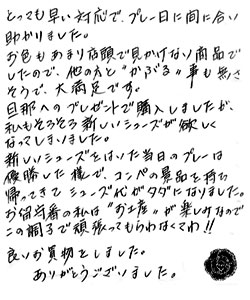 とっても早い対応で、プレー日に間に合い
助かりました。
お色もあまり店頭で見かけない商品で
したので、他の方と"かぶる"事も無さ
そうで、大満足です。
旦那へのプレゼントで購入しましたが、
私もそろそろ新しいシューズが欲しく
なってしまいました。
新しいシューズをはいた当日のプレーは
優勝した様で、コンペの景品を持ち
帰ってきてシューズ代がタダになりました。
お留守番の私は"お土産"が楽しみなので
この調子で頑張ってもらわなくてわ!!
良いお買物をしました。
ありがとうございました。